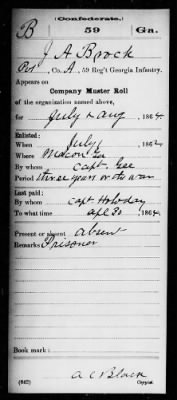 (Confederate.)
B 59 Ga.
J A Brock
Pvt, Co. A, 59 Reg't Georgia Infantry.
Appears on
Company Muster Roll
of the organization named above,
for July & Aug, 1864.
Enlisted:
When July, 186
Where Macon Ga
By whom Capt Gee
Period three years or the war
Last paid:
By whom Capt Holoday
To what time Apl 30, 1864.
Present or absent Absent
Remarks: Prisoner
Book mark:
A C Black
(642) Copyist.